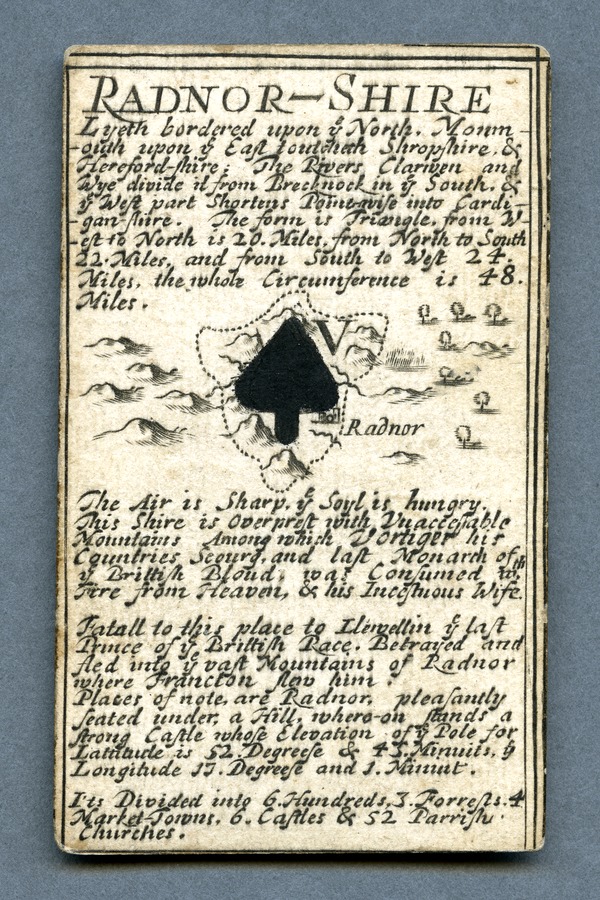 RADNOR-SHIRE
Lyeth bordered upon ẏ North. Monm-
outh upon ẏ East Joutcheth Shropſhire. &
Hereford-ſhire: The Rivers Clarwen and
Wye divide it from Brecknock in ẏ South, &
ẏ West part Shortens Point-wiſe into Cardi-
gan-ſhire. The form is Triangle, from W-
est to North is 20. Miles, from North to South
22. Miles, and from South to West 24.
Miles, the whole Circumference is 48.
Miles.
V
Radnor
The Air is Sharp, ẏ Soyl is hungry.
This Shire is Overprest with Vnacceſſable
Mountains Among which Vortiger his
Countries Scourg, and last Monarch of
ẏ Brittiſh Bloud, was Consumed wth
Fire from Heaven, & his Incestuous Wife.
Fatall to this place to Llewellin ẏ last
Prince of ẏ Brittiſh Race. Betrayed and
fled into ẏ vast Mountains of Radnor
where Francton slew him.
Places of note, are Radnor, pleaſantly
ſeated under, a Hill, where-on stands a
strong Castle whoſe Elevation of ẏ Pole for
Lattitude is 52. Degreeſe & Minuits, ẏ
Longitude 17. Degreeſe and 1. Minut.
Itis Divided into 6. Hundreds, 3. Forrests. 4
Market-Towns. 6. Castles & 52 Parriſh
Churches.